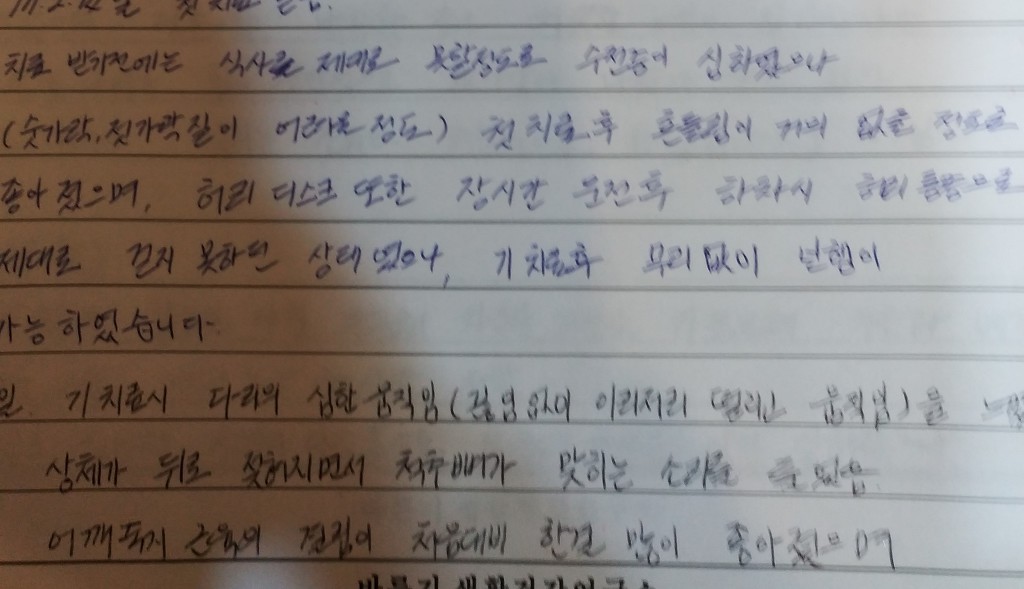 첫 치료 받음.
치료 받기전에는 식사를 제대로 못할정도로 수전증이 심하였으나
(숫가락,젓가락질이 어려운 정도) 첫 치료후 흔들림이 거의 없을 정도로
좋아졌으며, 허리 디스크 또한 장시간 운전후 하차시 허리 통증으로
제대로 걷지 못하던 상태였으나, 기치료후 무리없이 보행이
가능하였습니다.
일 기치료시 다리의 심한 움직임(끊임없이 이리저리 떨리고 움직임)를
상체가 뒤로 젖혀지면서 척추뼈가 맞히는 소리를
어깨쭉지 근육의 결림이 처음대비 한결 많이 좋아졌으며